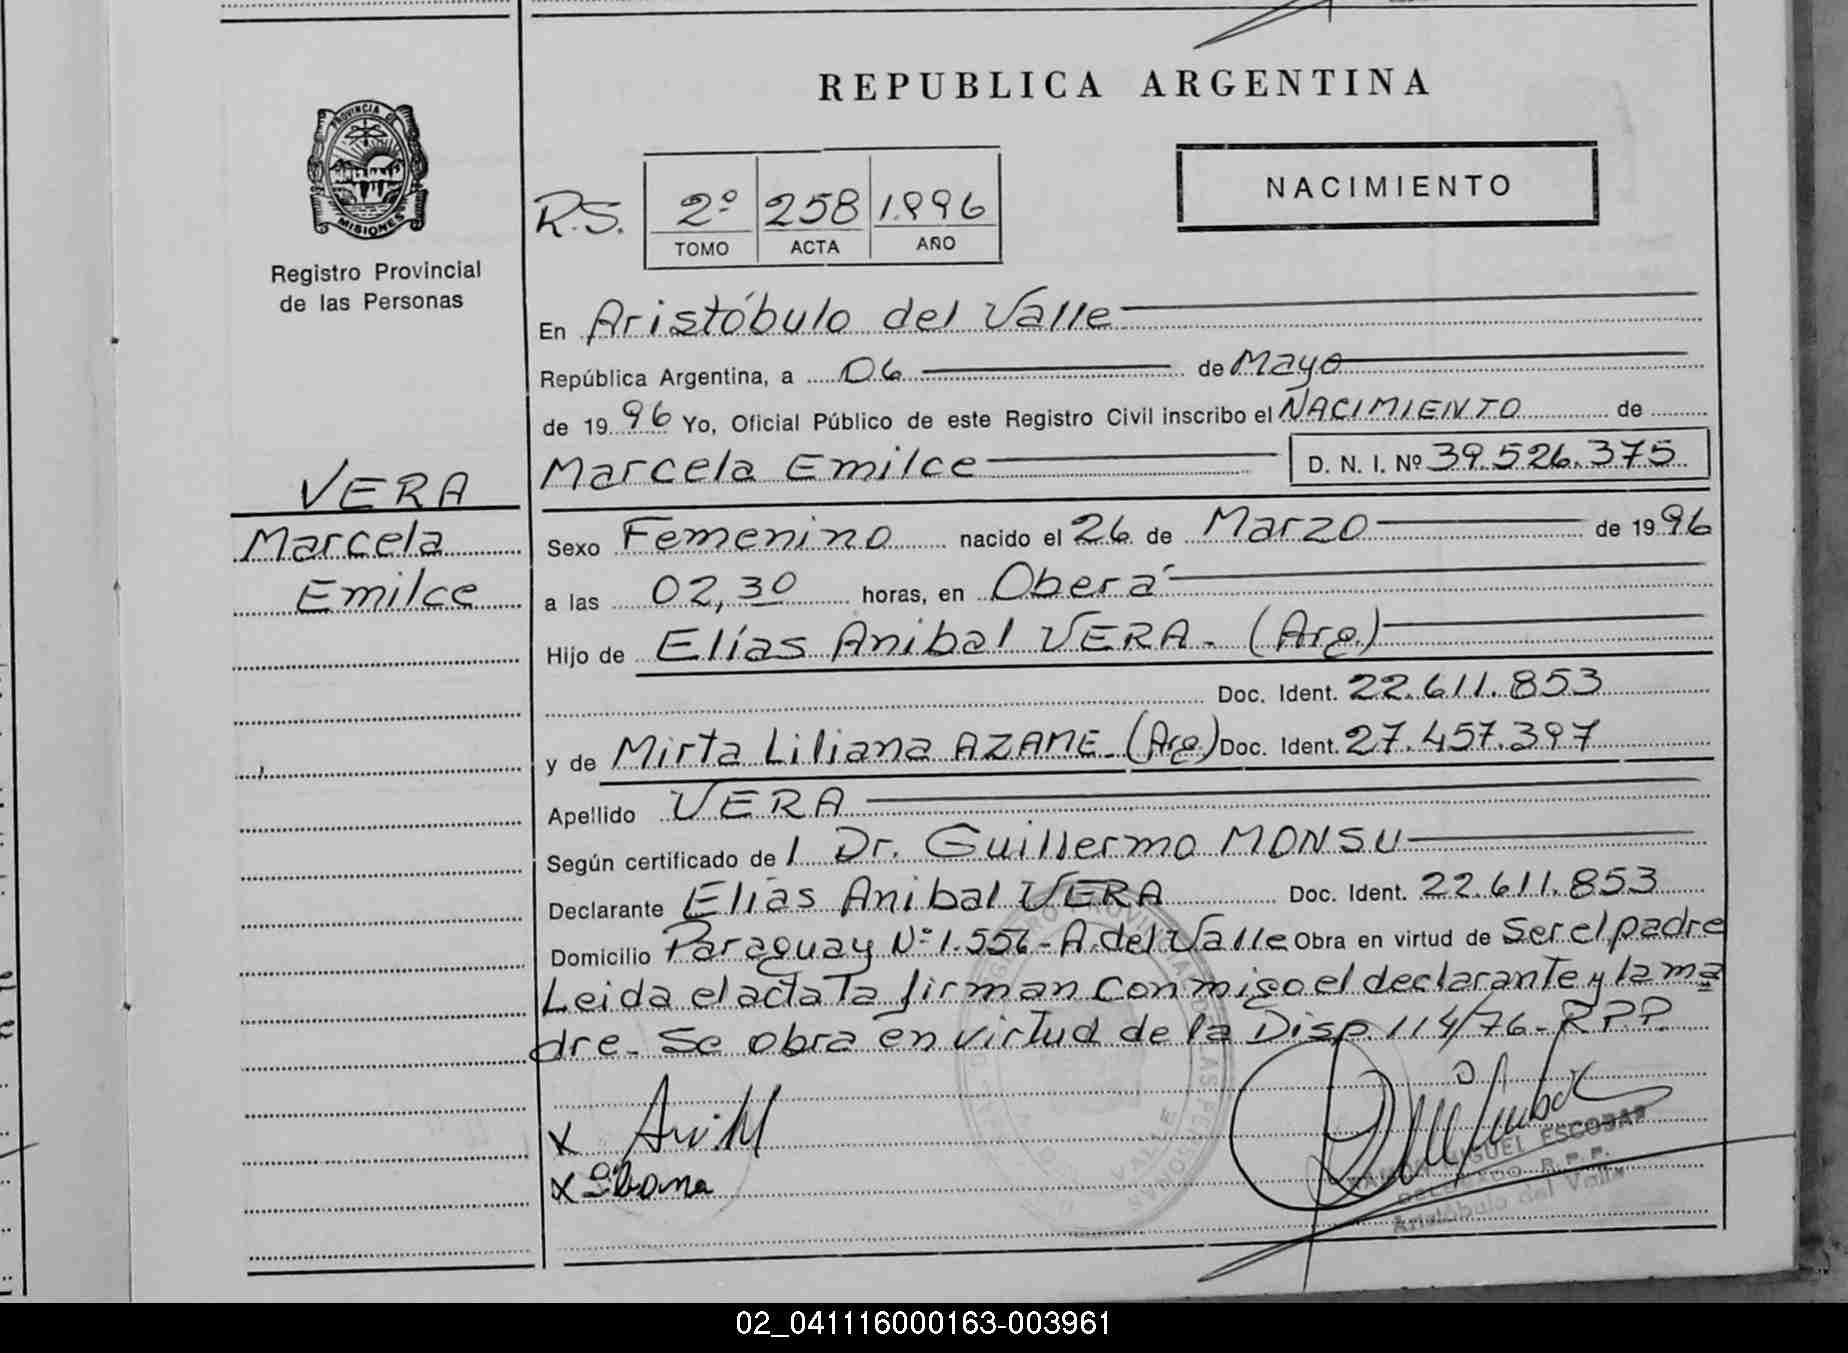 REPUBLICA ARGENTINA
PROVINCIA DE
MISIONES
Registro Provincial
de las Personas
R.S.
2º 258 1.996
TOMO ACTA AÑO
NACIMIENTO
En Aristóbulo del Valle
República Argentina, a 06 de Mayo
de 19 96 Yo, Oficial Público de este Registro Civil inscribo el NACIMIENTO de
Marcela Emilce D. N. I. Nº 39.526.375
VERA
Marcela
Emilce
Sexo Femenino nacido el 26 de Marzo de 19 96
a las 02,30 horas, en Oberá
Hijo de Elías Anibal VERA. (Arg.)
Doc. Ident. 22.611.853
y de Mirta Liliana AZAME. (Arg.) Doc. Ident. 27.457.397
Apellido VERA
Según certificado de l Dr. Guillermo MONSU
Declarante Elías Anibal VERA Doc. Ident. 22.611.853
Domicilio Paraguay Nº 1.556 - A. del Valle Obra en virtud de Ser el padre
Leida el acta la firman conmigo el declarante y la ma
dre. Se obra en virtud de la Disp. 114/76 - RPP.
x
x
RAMON MIGUEL ESCOBAR
DELEGADO R.P.P.
Aristóbulo del Valle
02_041116000163-003961